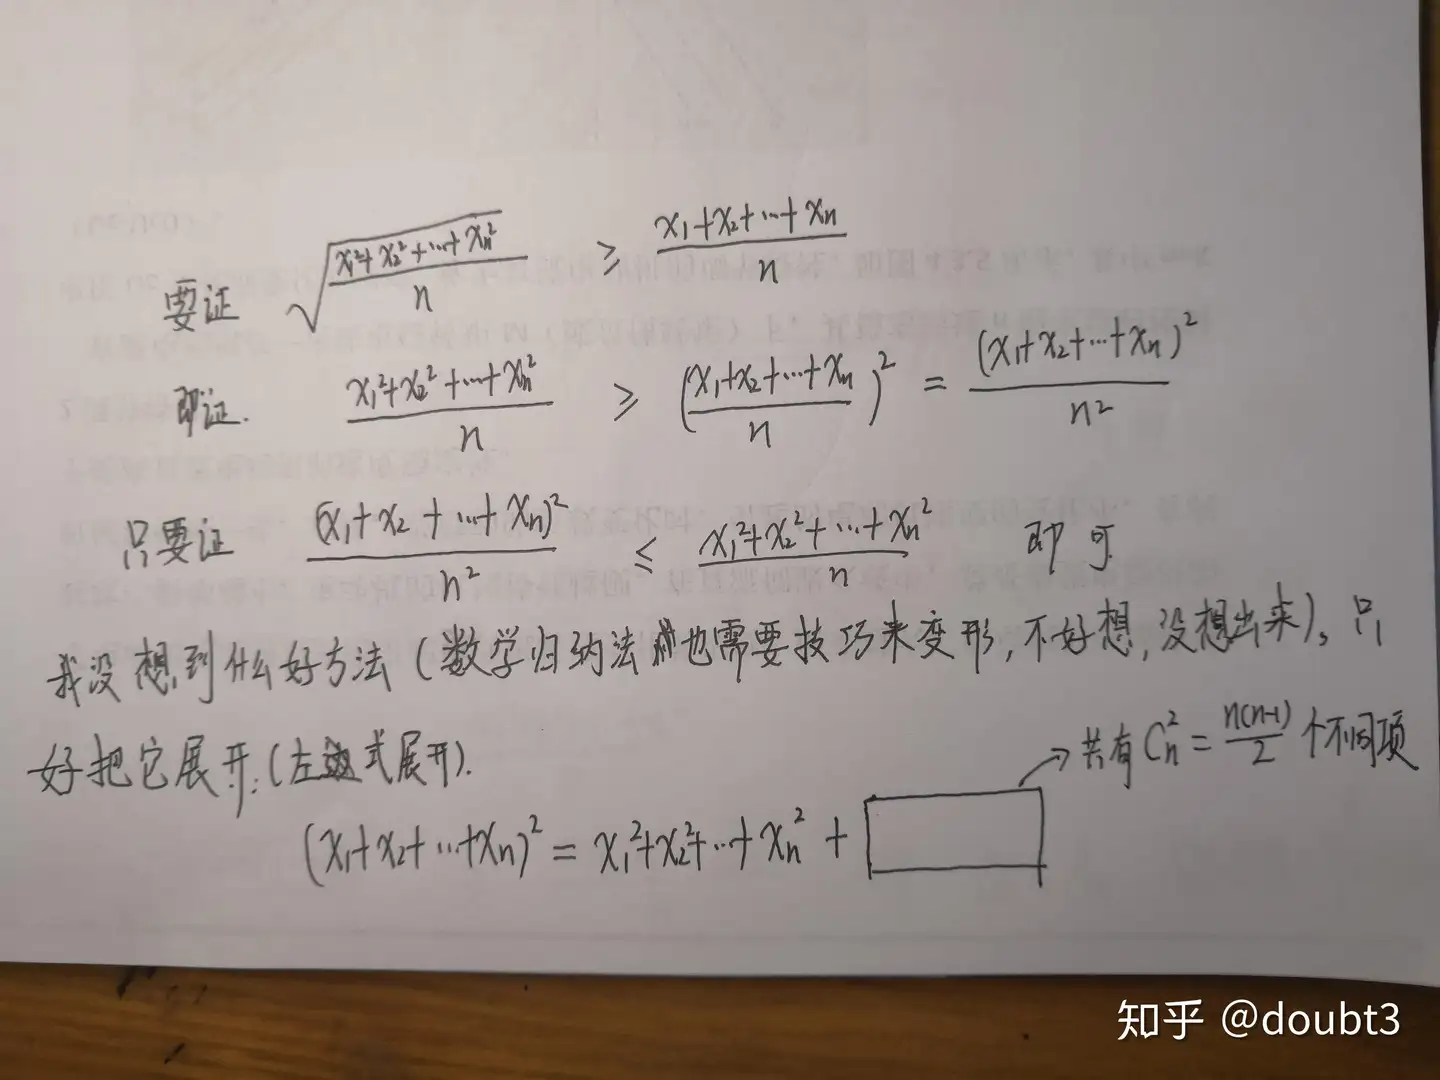 要证 √((x₁²+x₂²+···+xₙ²)/n) ≥ (x₁+x₂+···+xₙ)/n
即证. (x₁²+x₂²+···+xₙ²)/n ≥ ((x₁+x₂+···+xₙ)/n)² = (x₁+x₂+···+xₙ)²/n²
只要证 (x₁+x₂+···+xₙ)²/n² ≤ (x₁²+x₂²+···+xₙ²)/n 即可
我没想到什么好方法(数学归纳法也需要技巧来变形,不好想,没想出来)。只
好把它展开:(左边式展开).
→共有 Cₙ² = n(n-1)/2 个不同项
(x₁+x₂+···+xₙ)² = x₁²+x₂²+···+xₙ² +
知乎 @doubt3